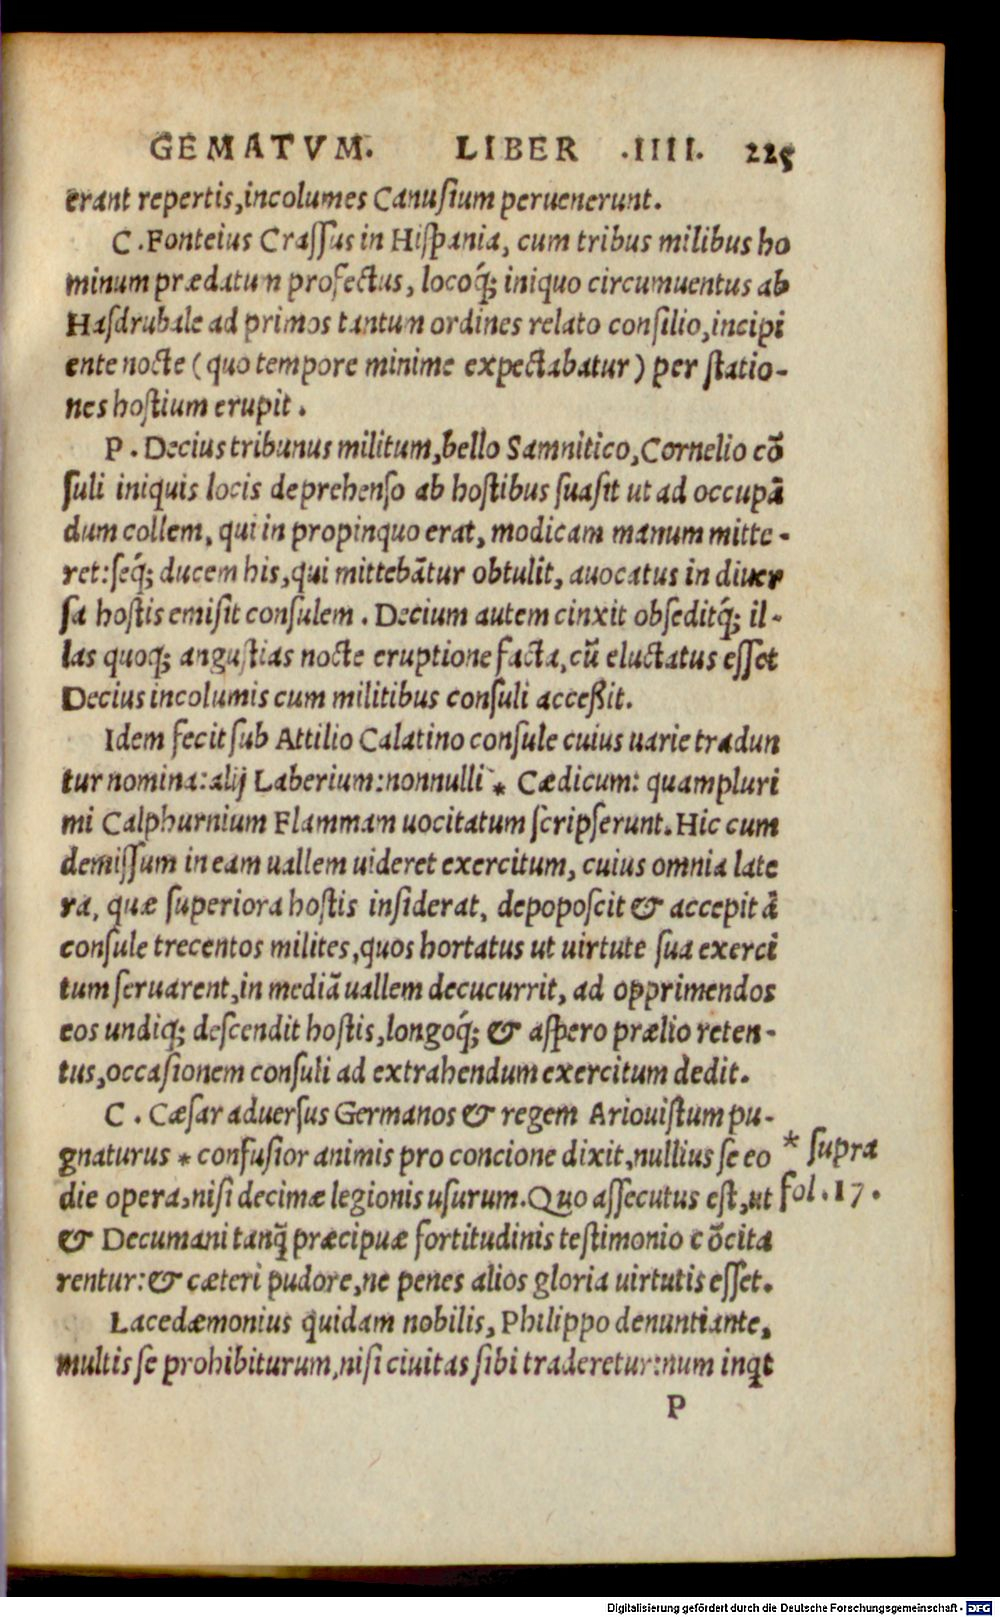 GEMATVM. LIBER .IIII. 225
erant repertis,incolumes Canuſium peruenerunt.
C.Fonteius Craſſus in Hiſpania, cum tribus milibus ho
minum prædatum profectus, locoq́; iniquo circumuentus ab
Haſdrubale ad primos tantum ordines relato conſilio,incipi
ente nocte (quo tempore minime expectabatur) per ſtatio-
nes hoſtium erupit.
P. Decius tribunus militum,bello Samnitico,Cornelio cō
ſuli iniquis locis deprehenſo ab hoſtibus ſuaſit ut ad occupā
dum collem, qui in propinquo erat, modicam manum mitte-
ret:ſeq́; ducem his,qui mittebātur obtulit, auocatus in diuer
ſa hoſtis emiſit conſulem. Decium autem cinxit obſeditq́; il-
las quoq; anguſtias nocte eruptione facta,cū eluctatus eſſet
Decius incolumis cum militibus conſuli acceßit.
Idem fecit ſub Attilio Calatino conſule cuius uarie tradun
tur nomina:alij Laberium:nonnulli * Cædicum: quampluri
mi Calphurnium Flammam uocitatum ſcripſerunt.Hic cum
demiſſum in eam uallem uideret exercitum, cuius omnia late
ra, quæ ſuperiora hoſtis inſiderat, depopoſcit & accepit ā
conſule trecentos milites,quos hortatus ut uirtute ſua exerci
tum ſeruarent,in mediā uallem decucurrit, ad opprimendos
eos undiq; deſcendit hoſtis,longoq́; & aſpero prælio reten-
tus,occaſionem conſuli ad extrahendum exercitum dedit.
C. Cæſar aduerſus Germanos & regem Arioviſtum pu-
gnaturus * confuſior animis pro concione dixit,nullius ſe eo
die opera,niſi decimæ legionis uſurum.Quo aſſecutus eſt,ut
& Decumani tanq̄ præcipuæ fortitudinis teſtimonio cōcita
rentur:& cæteri pudore,ne penes alios gloria uirtutis eſſet.
Lacedæmonius quidam nobilis, Philippo denuntiante,
multis ſe prohibiturum,niſi ciuitas ſibi traderetur:num inqt
P
* ſupra
fol.17.
Digitalisierung gefördert durch die Deutsche Forschungsgemeinschaft - DFG